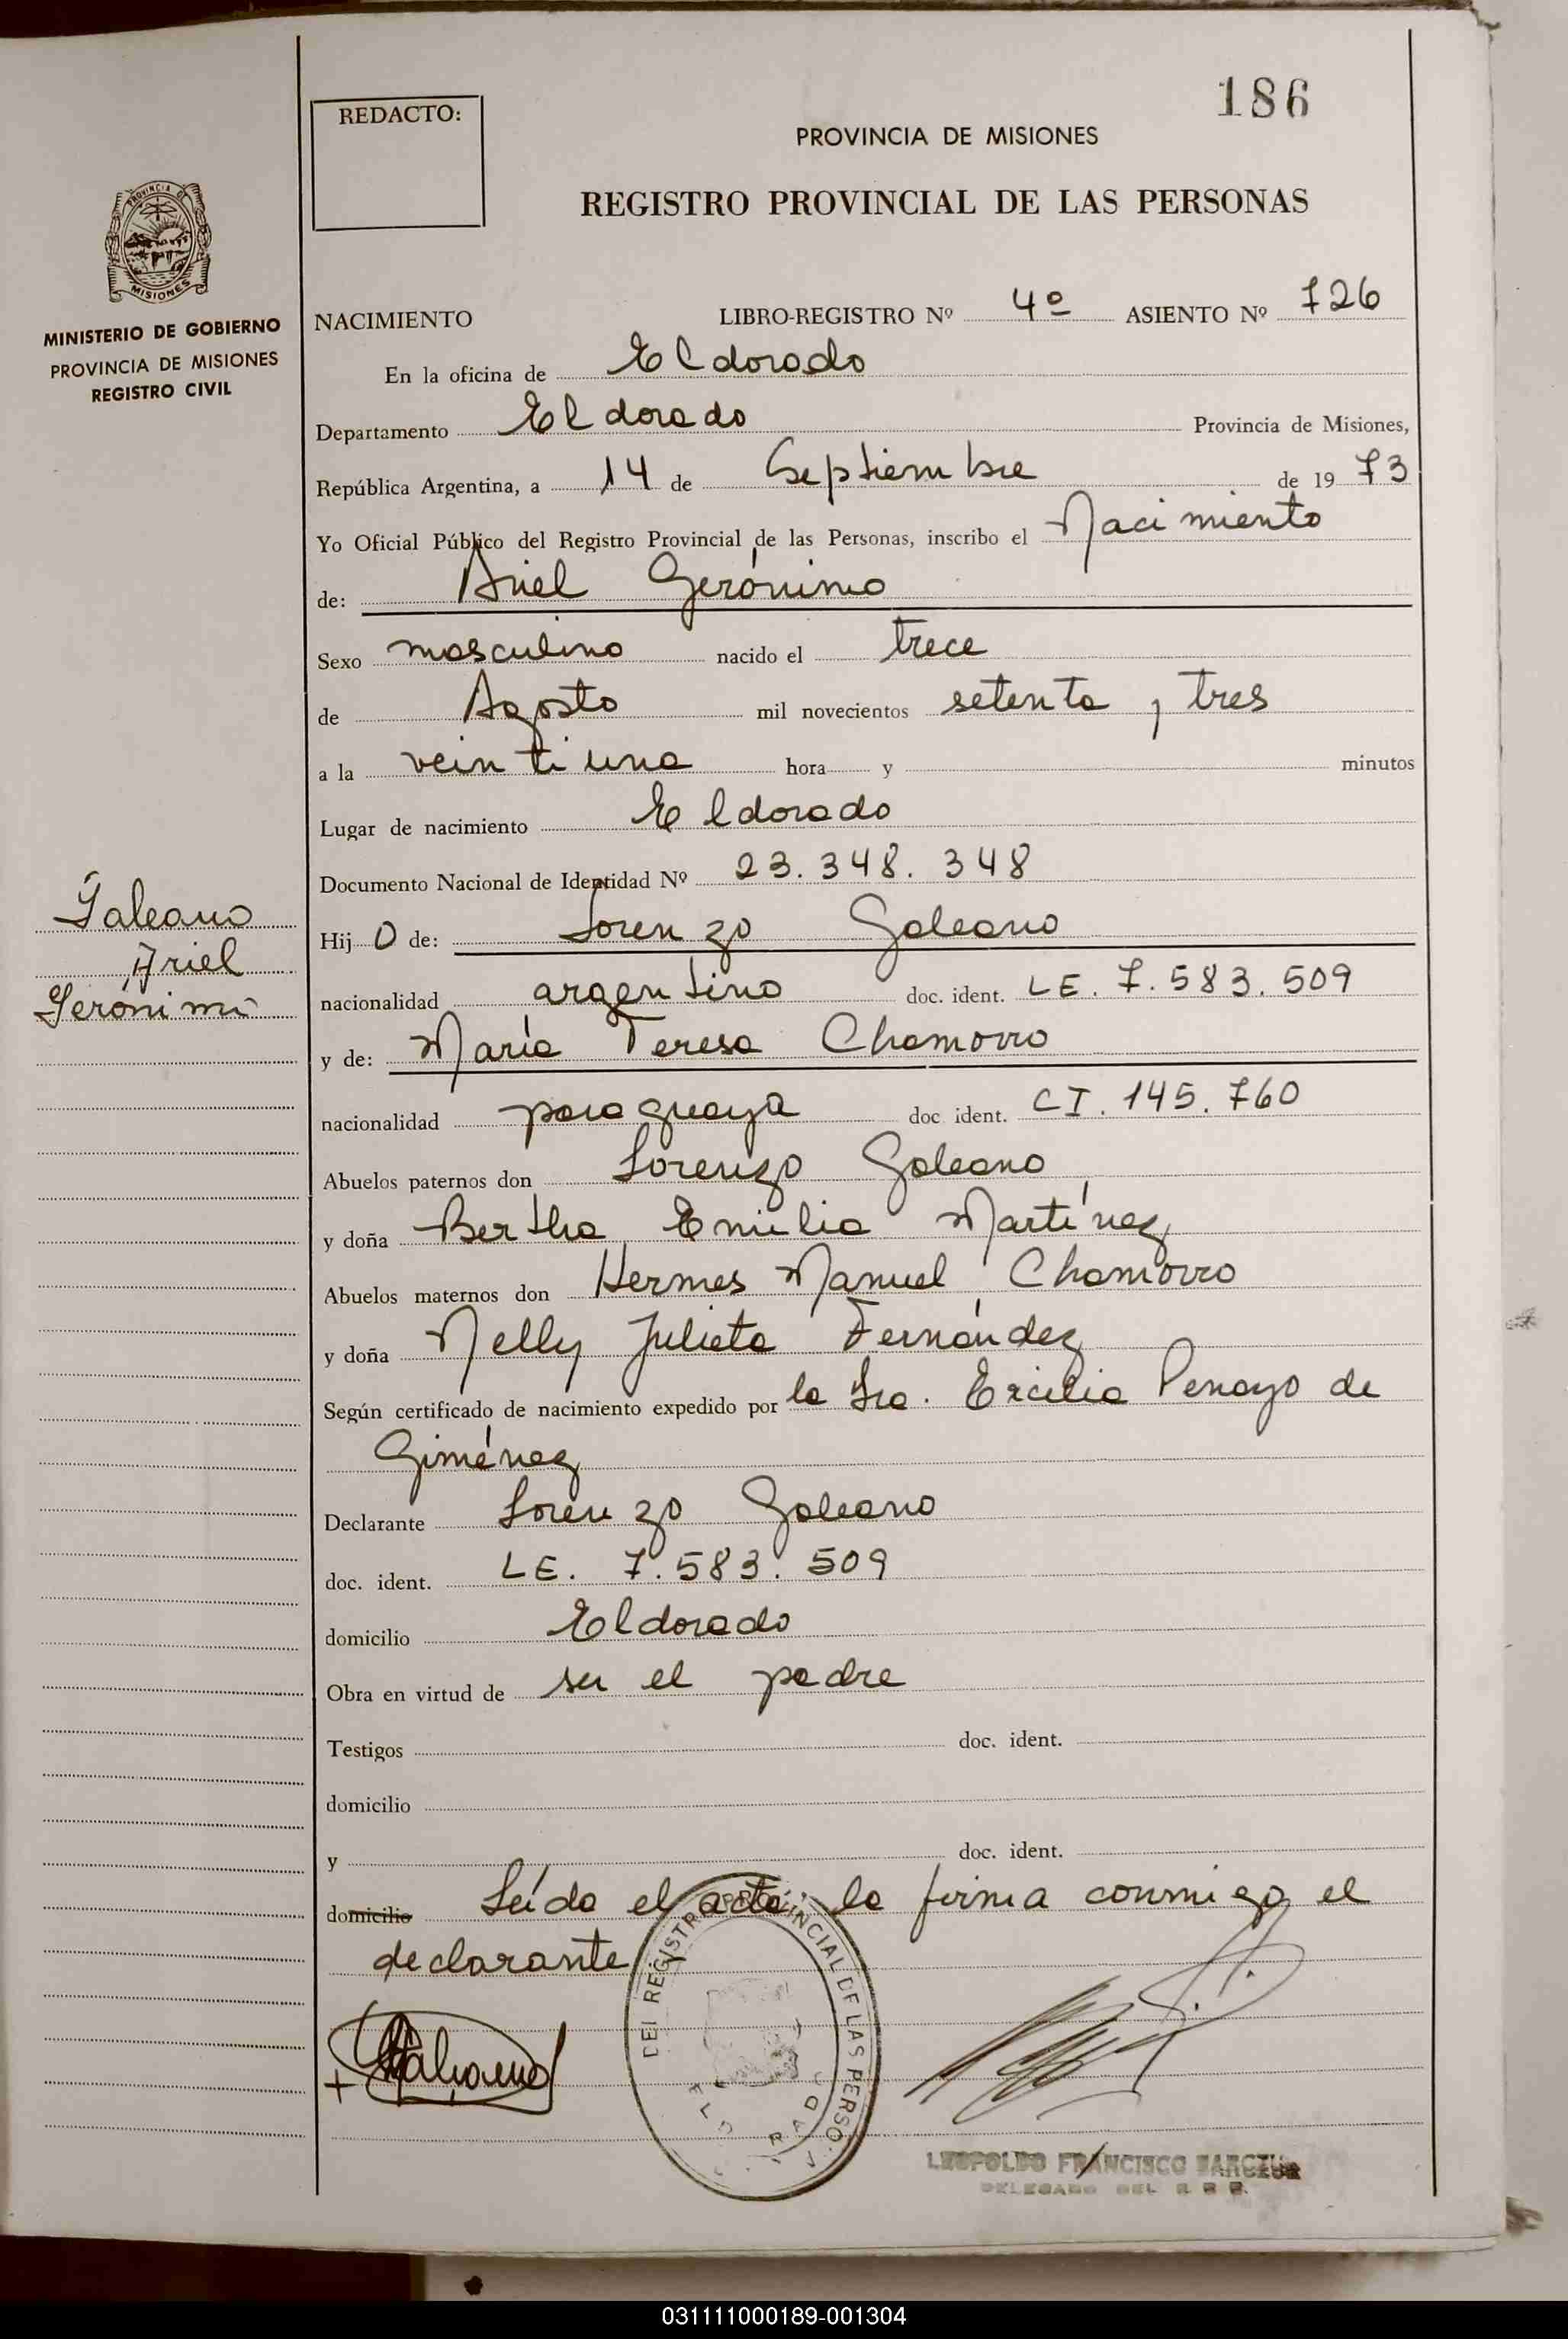 186
REDACTO:
PROVINCIA DE MISIONES
REGISTRO PROVINCIAL DE LAS PERSONAS
PROVINCIA DE
MISIONES
MINISTERIO DE GOBIERNO
PROVINCIA DE MISIONES
REGISTRO CIVIL
NACIMIENTO LIBRO-REGISTRO Nº 4º ASIENTO Nº 726
En la oficina de Eldorado
Departamento Eldorado Provincia de Misiones,
República Argentina, a 14 de Septiembre de 19 73
Yo Oficial Público del Registro Provincial de las Personas, inscribo el Nacimiento
de: Ariel Gerónimo
Sexo masculino nacido el trece
de Agosto mil novecientos setenta y tres
a la veintiuna hora y minutos
Lugar de nacimiento Eldorado
Documento Nacional de Identidad Nº 23.348.348
Galeano
Ariel
Gerónimo
Hij o de: Lorenzo Galeano
nacionalidad argentino doc. ident. LE. 7.583.509
y de: María Teresa Chamorro
nacionalidad paraguaya doc ident. CI. 145.760
Abuelos paternos don Lorenzo Galeano
y doña Bertha Emilia Martínez
Abuelos maternos don Hermes Manuel Chamorro
y doña Nelly Julieta Fernández
Según certificado de nacimiento expedido por la Sra. Ercilia Penayo de
Giménez
Declarante Lorenzo Galeano
doc. ident. LE. 7.583.509
domicilio Eldorado
Obra en virtud de ser el padre
Testigos doc. ident.
domicilio
y doc. ident.
domicilio Leída el acta, la firma conmigo el
declarante
DEL REGISTRO PROVINCIAL DE LAS PERSO
LEOPOLDO FRANCISCO
DELEGADO DEL
031111000189-001304